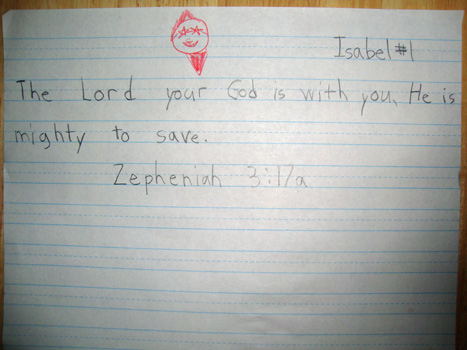 Isabel #1
The Lord your God is with you, He is
mighty to save.
Zepheniah 3:17a